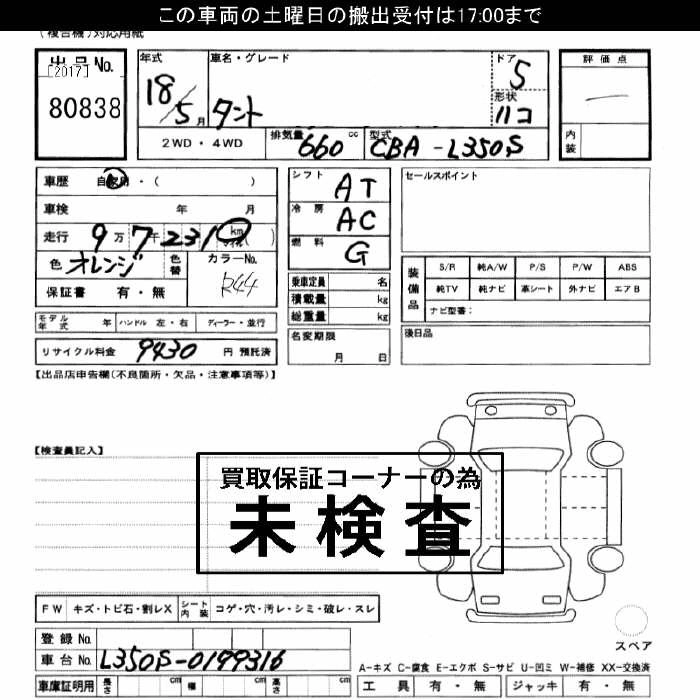 この車両の土曜日の搬出受付は17:00まで
(複合機)対応用紙
出品No.
[2017]
80838
年式 車名・グレード ドア 5
18/5月 タント 形状 ハコ
2WD・4WD 排気量 660 cc 型式 CBA-L350S
評価点
―
内装
車歴 自家用・( )
車検 年 月
走行 9万7千231km マイル( )
色 オレンジ 色替 カラーNo. R44
保証書 有・無
モデル年式 年 ハンドル 左・右 ディーラー・並行
リサイクル料金 9430 円 預託済
シフト AT
冷房 AC
燃料 G
乗車定員 名
積載量 kg
総重量 kg
名変期限
月 日
セールスポイント
装備品
S/R 純A/W P/S P/W ABS
純TV 純ナビ 革シート 外ナビ エアB
ナビ型番:
後日品
【出品店申告欄(不良箇所・欠品・注意事項等)】
【検査員記入】
買取保証コーナーの為
未検査
FW キズ・トビ石・割レX シート内装 コゲ・穴・汚レ・シミ・破レ・スレ
登録No.
車台No. L350S-0199316
車庫証明用 長さ cm 幅 cm 高さ cm
スペア
A-キズ C-腐食 E-エクボ S-サビ U-凹ミ W-補修 XX-交換済
工具 有・無 ジャッキ 有・無